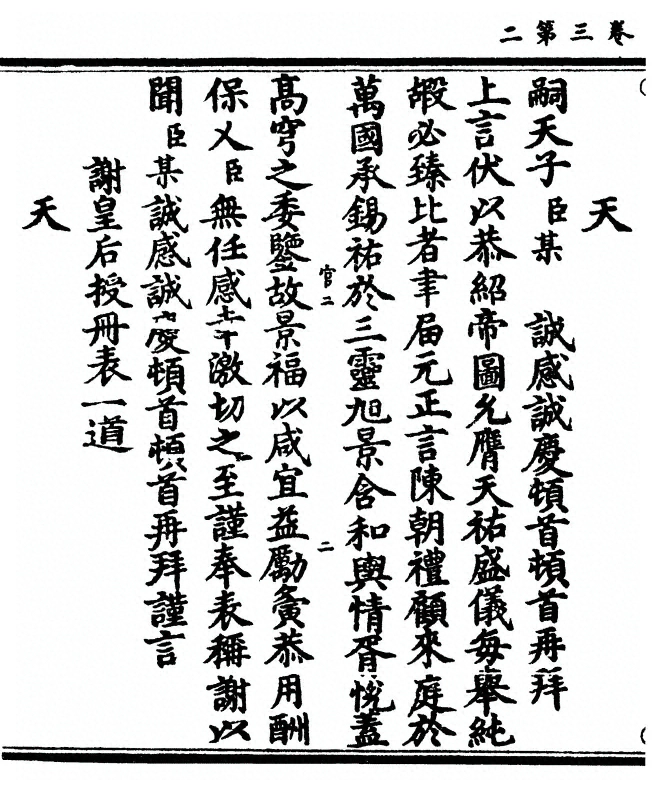 卷三第二
天
嗣天子臣某 誠感誠慶頓首頓首再拜
上言伏以恭紹帝圖允膺天祐盛儀每舉純
嘏必臻比者聿届元正言陳朝禮顧來庭於
萬國承錫祐於三靈旭景含和輿情胥悅蓋
官二
二
髙穹之委鑒故景福以咸宜益勵夤恭用酬
保乂臣無任感幸激切之至謹奉表稱謝以
聞臣某誠感誠慶頓首頓首再拜謹言
謝皇后授册表一道
天